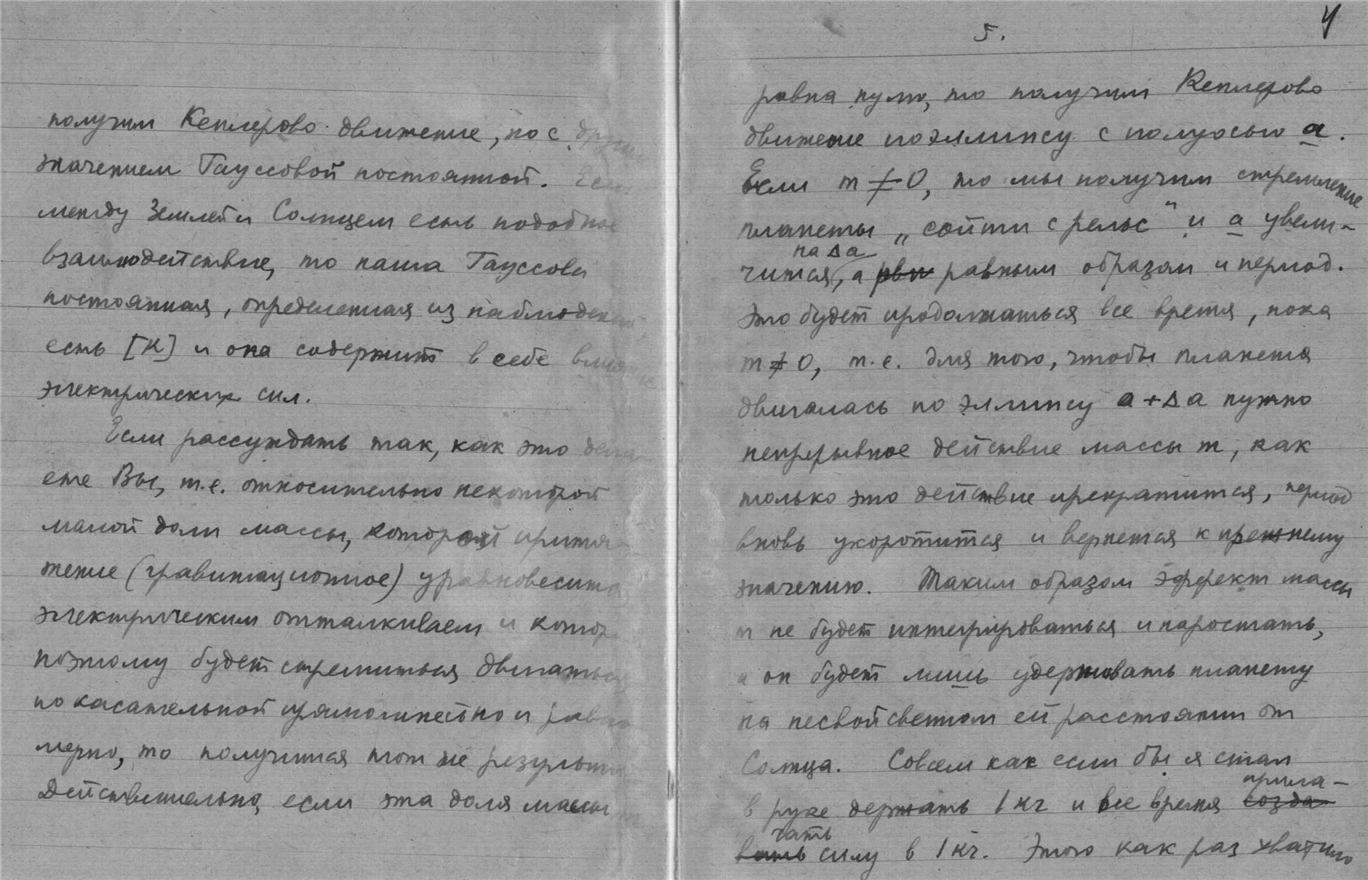 получим Кеплерово движение, но с другим
значением Гауссовой постоянной. Если
между Землей и Солнцем есть подобное
взаимодействие, то наша Гауссова
постоянная, определенная из наблюдений,
есть [К] и она содержит в себе влияние
электрических сил.
Если рассуждать так, как это дела-
ете Вы, т.е. относительно некоторой
малой доли массы, которой притя-
жение (гравитационное) уравновесится
электрическим отталкиваем и котор.
поэтому будет стремиться двигаться
по касательной прямолинейно и равно
мерно, то получится тот же результат
Действительно, если эта доля массы m
5.
4
равна нулю, то получим Кеплерово
движение по эллипсу с полуосью a.
Если m ≠ 0, то мы получим стремление
планеты „сойти с рельс" и a увели-
на Δa
чится, а равным образом и период.
Это будет продолжаться все время, пока
m ≠ 0, т.е. для того, чтобы планета
двигалась по эллипсу a + Δa нужно
непрерывное действие массы m, как
только это действие прекратится, период
вновь укоротится и вернется к прежнему
значению. Таким образом эффект массы
m не будет интегрироваться и наростать,
а он будет лишь удерживать планету
на несвойственом ей расстоянии от
Солнца. Совсем как если бы я стал
прила-
в руке держать 1 кг и все время созда-
гать
вать силу в 1 кг. Этого как раз хватило